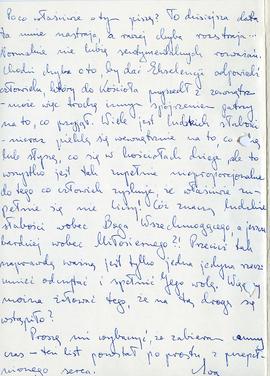 Po co właściwie o tym piszę? To dzisiejsza data
ta mnie nastraja, a raczej chyba rozstraja...
Normalnie nie lubię sentymentalnych rozważań.
Chodzi chyba o to, by dać Ekscelencji odpowiedź
człowieka, który do Kościoła przyszedł z zewnątrz
- może więc trochę innym spojrzeniem patrzy
na to, co przyjął. Wiele jest ludzkich słabości
- nieraz się wewnętrznie na to, co
lub słyszę, co się w kościołach dzieje, ale to
wszystko jest tak zupełnie nieproporcjonalne
do tego co człowiek zyskuje, że właściwie zu-
pełnie się nie liczy! Cóż znaczą ludzkie
słabości wobec Boga Wszechmogącego, a jeszcze
bardziej wobec Miłosiernego?! Przecież tak
naprawdę ważną jest tylko jedna jedyna rzecz:
umieć odczytać i spełnić Jego wolę. Więc czy
można żałować tego, że na tą drogę się
wstąpiło?
Proszę mi wybaczyć, że zabieram cenny
czas - ten list powstał po prostu z przepeł-
nionego serca.